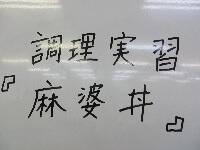 調理実習
『麻婆丼』